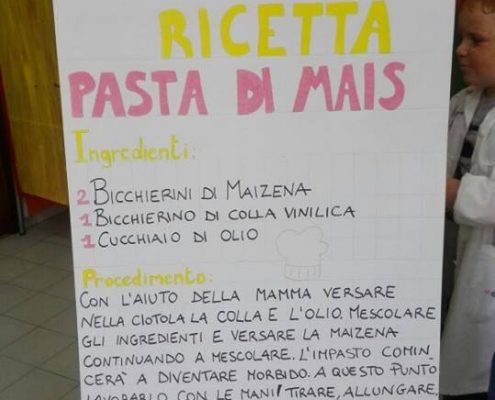 RICETTA
PASTA DI MAIS
Ingredienti:
2 BICCHIERINI DI MAIZENA
1 BICCHIERINO DI COLLA VINILICA
1 CUCCHIAIO DI OLIO
Procedimento:
CON L'AIUTO DELLA MAMMA VERSARE
NELLA CIOTOLA LA COLLA E L'OLIO. MESCOLARE
GLI INGREDIENTI E VERSARE LA MAIZENA
CONTINUANDO A MESCOLARE. L'IMPASTO COMIN-
CERÀ A DIVENTARE MORBIDO. A QUESTO PUNTO
LAVORARLO CON LE MANI: TIRARE, ALLUNGARE,